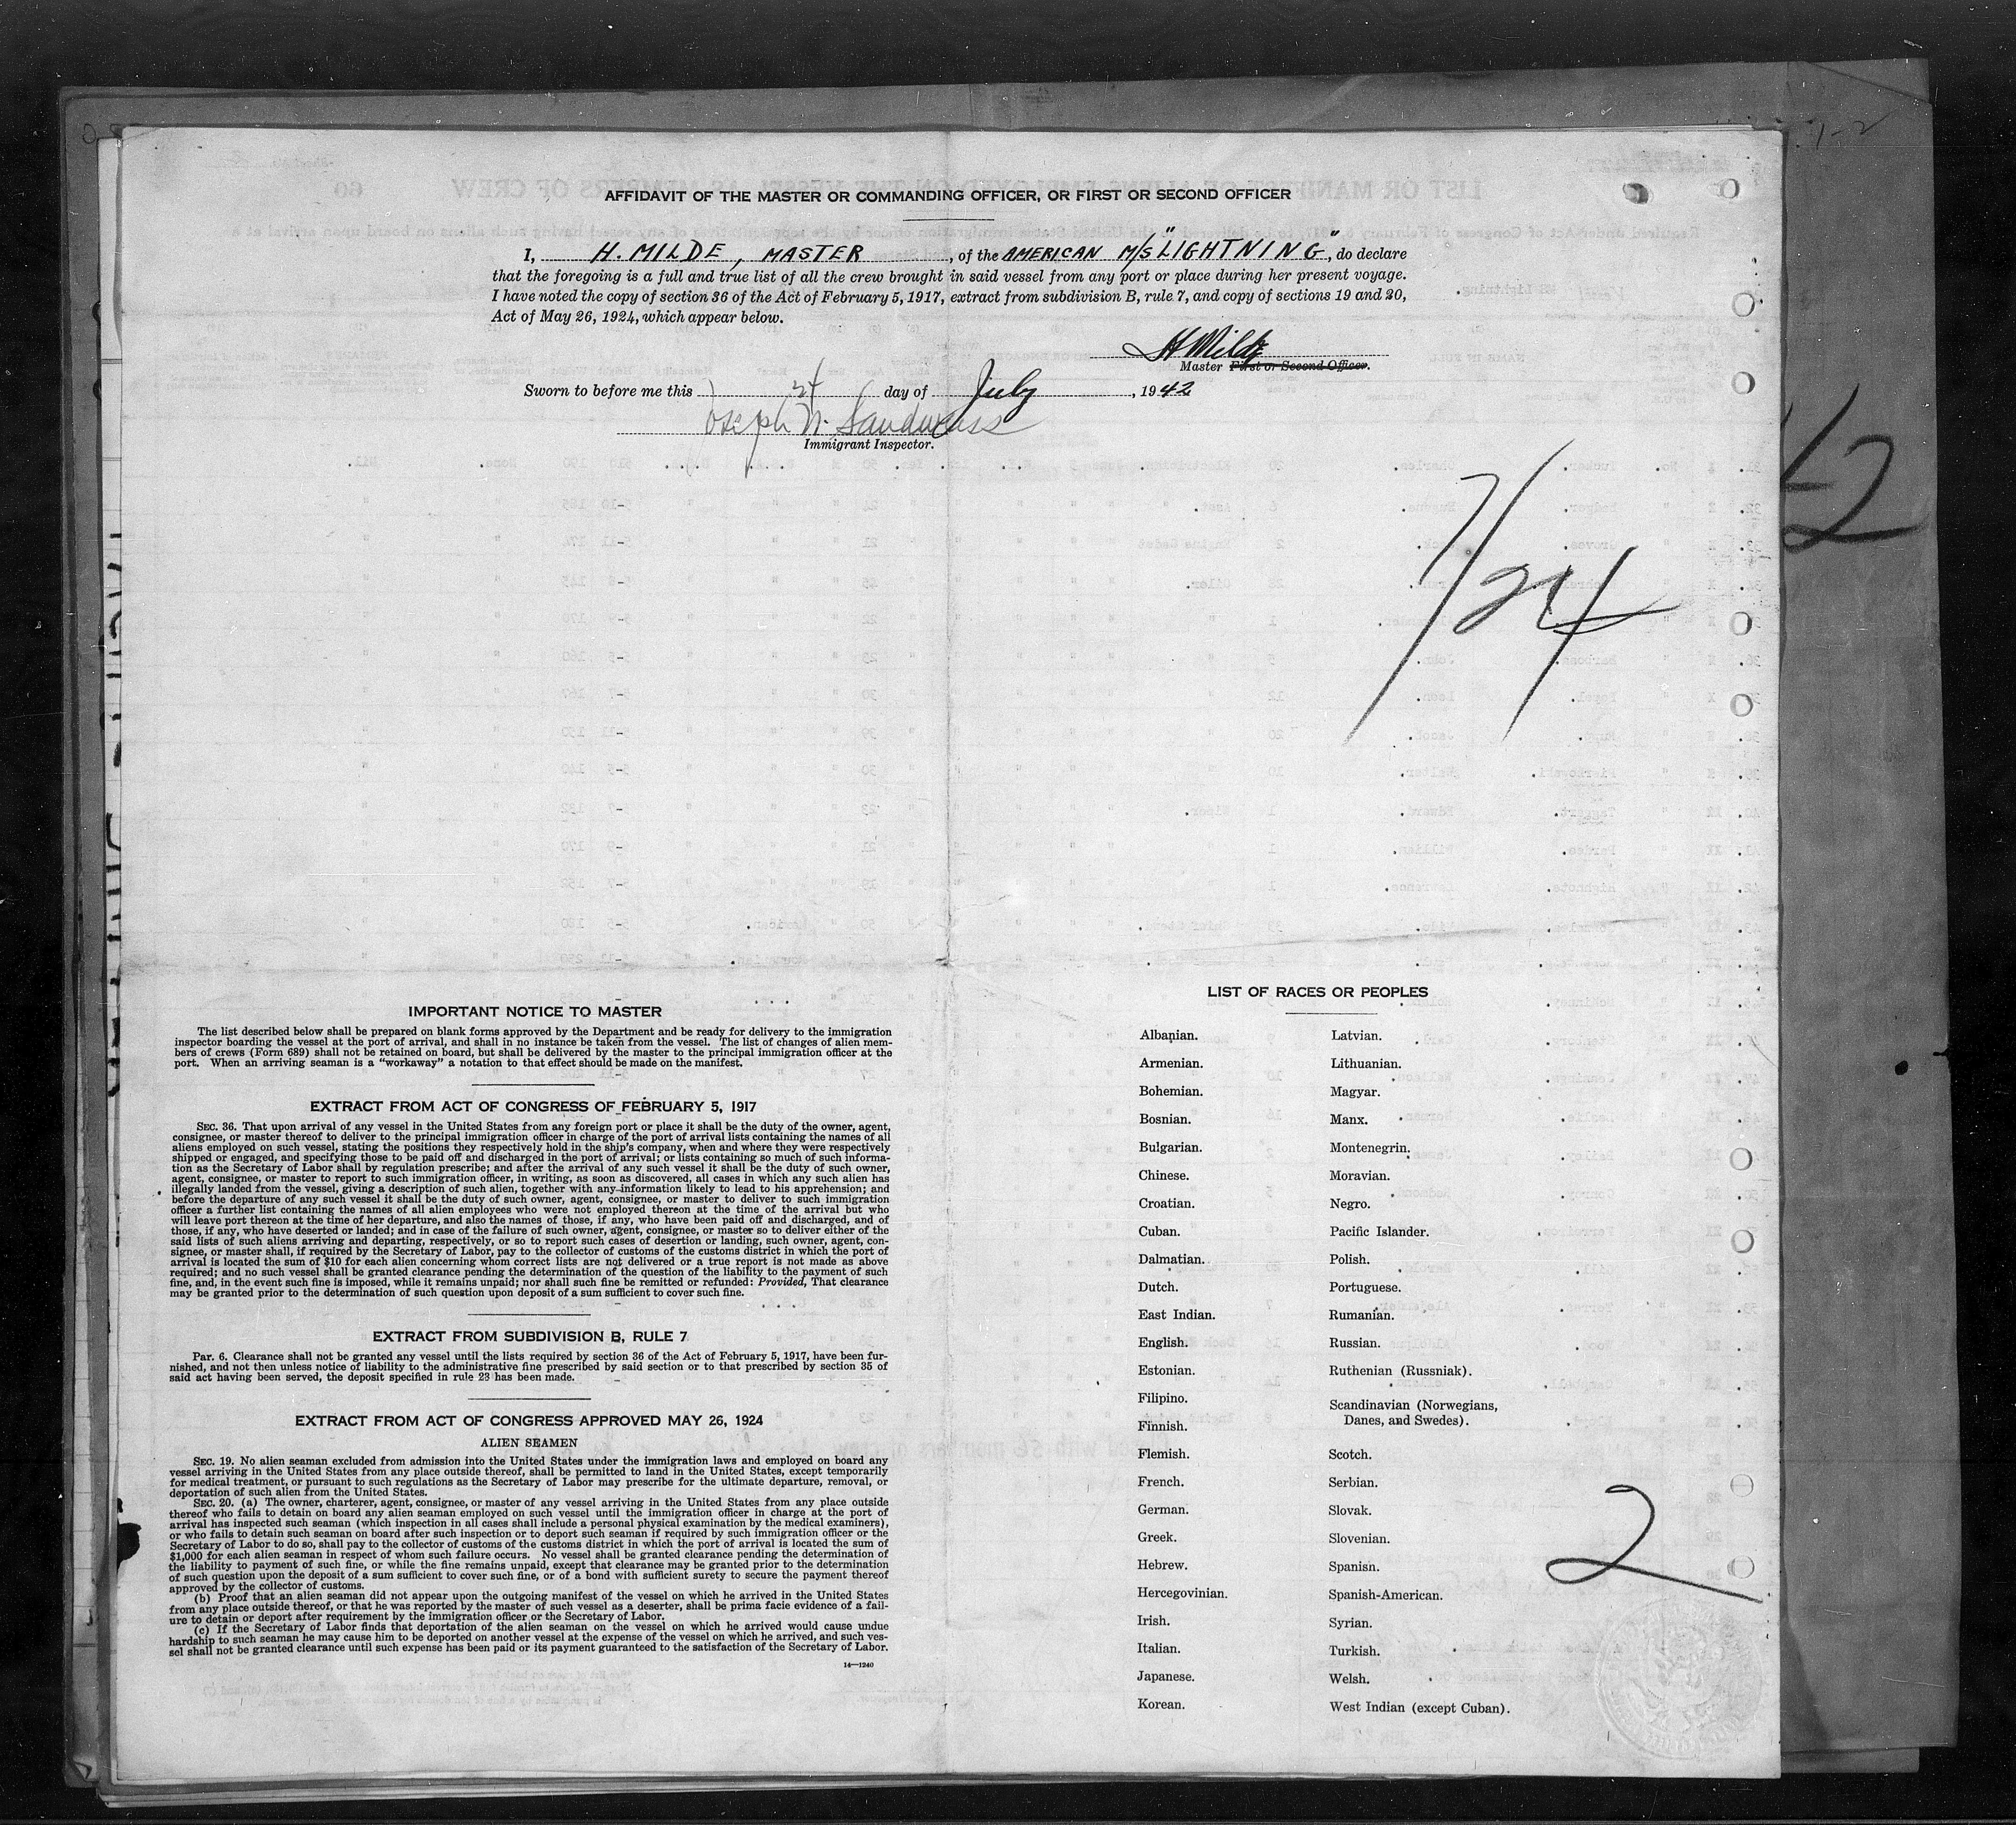 AFFIDAVIT OF THE MASTER OR COMMANDING OFFICER, OR FIRST OR SECOND OFFICER
I, H. MILDE, MASTER, of the AMERICAN M/S "LIGHTNING", do declare
that the foregoing is a full and true list of all the crew brought in said vessel from any port or place during her present voyage.
I have noted the copy of section 36 of the Act of February 5, 1917, extract from subdivision B, rule 7, and copy of sections 19 and 20,
Act of May 26, 1924, which appear below.
H Milde
Master First or Second Officer.
Sworn to before me this 24 day of July, 1942
Joseph N.
Immigrant Inspector.
7/24
IMPORTANT NOTICE TO MASTER
The list described below shall be prepared on blank forms approved by the Department and be ready for delivery to the immigration
inspector boarding the vessel at the port of arrival, and shall in no instance be taken from the vessel. The list of changes of alien mem-
bers of crews (Form 689) shall not be retained on board, but shall be delivered by the master to the principal immigration officer at the
port. When an arriving seaman is a "workaway" a notation to that effect should be made on the manifest.
EXTRACT FROM ACT OF CONGRESS OF FEBRUARY 5, 1917
SEC. 36. That upon arrival of any vessel in the United States from any foreign port or place it shall be the duty of the owner, agent,
consignee, or master thereof to deliver to the principal immigration officer in charge of the port of arrival lists containing the names of all
aliens employed on such vessel, stating the positions they respectively hold in the ship's company, when and where they were respectively
shipped or engaged, and specifying those to be paid off and discharged in the port of arrival; or lists containing so much of such informa-
tion as the Secretary of Labor shall by regulation prescribe; and after the arrival of any such vessel it shall be the duty of such owner,
agent, consignee, or master to report to such immigration officer, in writing, as soon as discovered, all cases in which any such alien has
illegally landed from the vessel, giving a description of such alien, together with any information likely to lead to his apprehension; and
before the departure of any such vessel it shall be the duty of such owner, agent, consignee, or master to deliver to such immigration
officer a further list containing the names of all alien employees who were not employed thereon at the time of the arrival but who
will leave port thereon at the time of her departure, and also the names of those, if any, who have been paid off and discharged, and of
those, if any, who have deserted or landed; and in case of the failure of such owner, agent, consignee, or master so to deliver either of the
said lists of such aliens arriving and departing, respectively, or so to report such cases of desertion or landing, such owner, agent, con-
signee, or master shall, if required by the Secretary of Labor, pay to the collector of customs of the customs district in which the port of
arrival is located the sum of $10 for each alien concerning whom correct lists are not delivered or a true report is not made as above
required; and no such vessel shall be granted clearance pending the determination of the question of the liability to the payment of such
fine, and, in the event such fine is imposed, while it remains unpaid; nor shall such fine be remitted or refunded: Provided, That clearance
may be granted prior to the determination of such question upon deposit of a sum sufficient to cover such fine.
EXTRACT FROM SUBDIVISION B, RULE 7
Par. 6. Clearance shall not be granted any vessel until the lists required by section 36 of the Act of February 5, 1917, have been fur-
nished, and not then unless notice of liability to the administrative fine prescribed by said section or to that prescribed by section 35 of
said act having been served, the deposit specified in rule 23 has been made.
EXTRACT FROM ACT OF CONGRESS APPROVED MAY 26, 1924
ALIEN SEAMEN
SEC. 19. No alien seaman excluded from admission into the United States under the immigration laws and employed on board any
vessel arriving in the United States from any place outside thereof, shall be permitted to land in the United States, except temporarily
for medical treatment, or pursuant to such regulations as the Secretary of Labor may prescribe for the ultimate departure, removal, or
deportation of such alien from the United States.
SEC. 20. (a) The owner, charterer, agent, consignee, or master of any vessel arriving in the United States from any place outside
thereof who fails to detain on board any alien seaman employed on such vessel until the immigration officer in charge at the port of
arrival has inspected such seaman (which inspection in all cases shall include a personal physical examination by the medical examiners),
or who fails to detain such seaman on board after such inspection or to deport such seaman if required by such immigration officer or the
Secretary of Labor to do so, shall pay to the collector of customs of the customs district in which the port of arrival is located the sum of
$1,000 for each alien seaman in respect of whom such failure occurs. No vessel shall be granted clearance pending the determination of
the liability to payment of such fine, or while the fine remains unpaid, except that clearance may be granted prior to the determination
of such question upon the deposit of a sum sufficient to cover such fine, or of a bond with sufficient surety to secure the payment thereof
approved by the collector of customs.
(b) Proof that an alien seaman did not appear upon the outgoing manifest of the vessel on which he arrived in the United States
from any place outside thereof, or that he was reported by the master of such vessel as a deserter, shall be prima facie evidence of a fail-
ure to detain or deport after requirement by the immigration officer or the Secretary of Labor.
(c) If the Secretary of Labor finds that deportation of the alien seaman on the vessel on which he arrived would cause undue
hardship to such seaman he may cause him to be deported on another vessel at the expense of the vessel on which he arrived, and such ves-
sel shall not be granted clearance until such expense has been paid or its payment guaranteed to the satisfaction of the Secretary of Labor.
14—1240
LIST OF RACES OR PEOPLES
Albanian.
Armenian.
Bohemian.
Bosnian.
Bulgarian.
Chinese.
Croatian.
Cuban.
Dalmatian.
Dutch.
East Indian.
English.
Estonian.
Filipino.
Finnish.
Flemish.
French.
German.
Greek.
Hebrew.
Hercegovinian.
Irish.
Italian.
Japanese.
Korean.
Latvian.
Lithuanian.
Magyar.
Manx.
Montenegrin.
Moravian.
Negro.
Pacific Islander.
Polish.
Portuguese.
Rumanian.
Russian.
Ruthenian (Russniak).
Scandinavian (Norwegians,
Danes, and Swedes).
Scotch.
Serbian.
Slovak.
Slovenian.
Spanish.
Spanish-American.
Syrian.
Turkish.
Welsh.
West Indian (except Cuban).
2